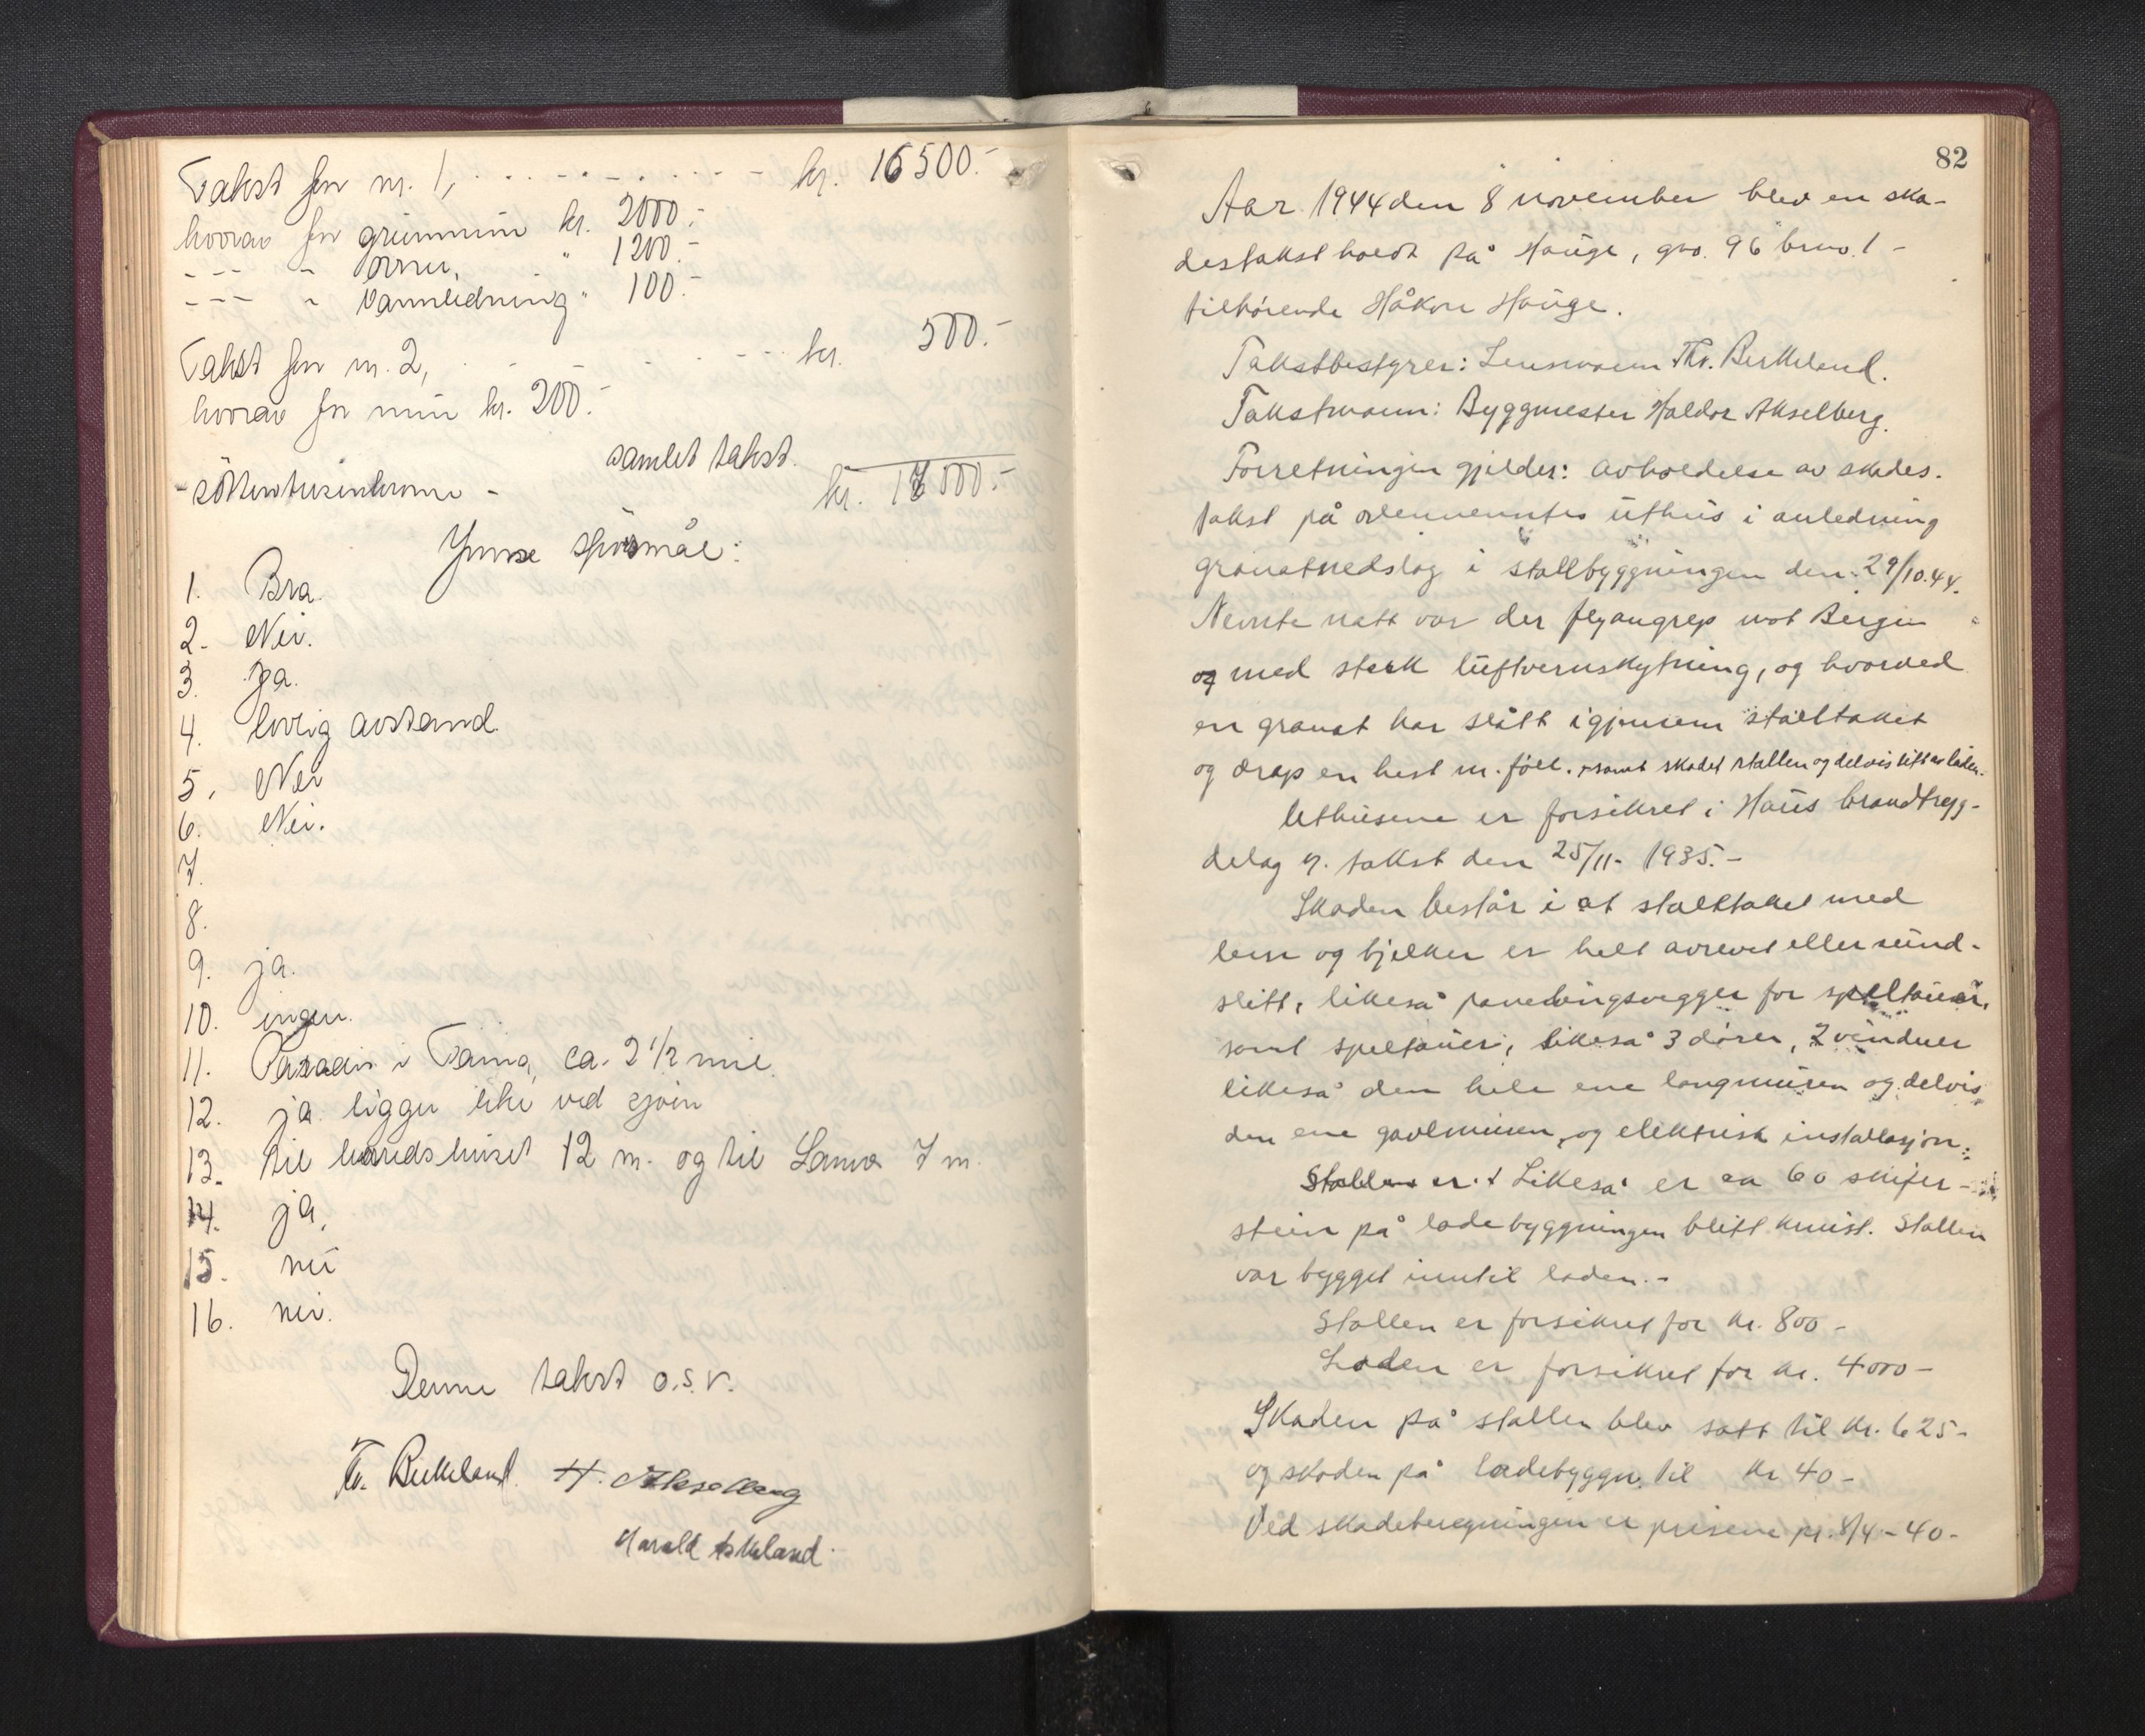 Takst for nr. 1, . . . . . . . . . kr. 16500.-
hvorav for grunnmur kr. 2000.-
- - - - " ovner, " 1200.-
- - - - " vannledning " 100.-
Takst for nr. 2, . . . . . . kr. 500.-
hvorav for mur kr. 200.-
samlet takst.
- sÿttentusenkroner - kr. 17000.-
Ymse spörsmål:
1. Bra.
2. Nei.
3. Ja.
4. lovlig avstand.
5. Nei
6. Nei.
7.
8.
9. ja.
10. ingen.
11. i ca. 2 1/2 mil.
12. ja. ligger like ved sjøen
13. til lmandshuset 12 m. og til 7 m.
14. ja.
15. nei
16. nei.
Denne takst o.s.v.
Tv. Birkeland. H. Akselberg
Harald Askeland.
82
Aar 1944 den 8 november blev en ska-
destakst holdt på Hauge, gno. 96 brno. 1 -
tilhørende Håkon Hauge.
Takstbestyrer: Lensmann Thv. Birkeland.
Takstmann: Byggmester Haldor Akselberg.
Forretningen gjelder: avholdelse av skades-
takst på ovennevntes uthus i anledning
granatnedslag i stallbyggningen den 29/10.44.
Nevnte natt var der flyangrep mot Bergen
og med sterk luftvernskytning, og hvorved
en granat har slått igjennem stalltaket
og drap en hest m. føll. samt skadet stallen og delvis litt av låden.
Uthusene er forsikret i Haus brandtryg-
delag if. takst den 25/11- 1935.-
Skaden består i at stalltaket med
og bjelker er helt avrevet eller sund-
slitt, likeså panelingsvegger for speltauer,
samt speltauer, likeså 3 dører, 2 vinduer
likeså den hele ene langmuren og delvis
den ene gavlmuren, og elektrisk installasjon.
Stallen er. Likeså er ca 60 skifer-
stein på ladebyggningen blitt knust. Stallen
var bygget inntil laden.-
Stallen er forsikret for kr. 800 -
Laden er forsikret for kr. 4000 -
Skaden på stallen blev satt til kr. 625-
og skaden på ladebyggn. til kr 40 -
Ved skadeberegningen er prisene pr. 8/4-40-